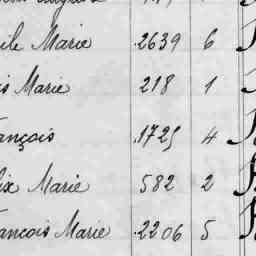 ile Marie 2639 6
is Marie 218 1
ançois 1725 4
ix Marie 582 2
rancois Marie 2206 5